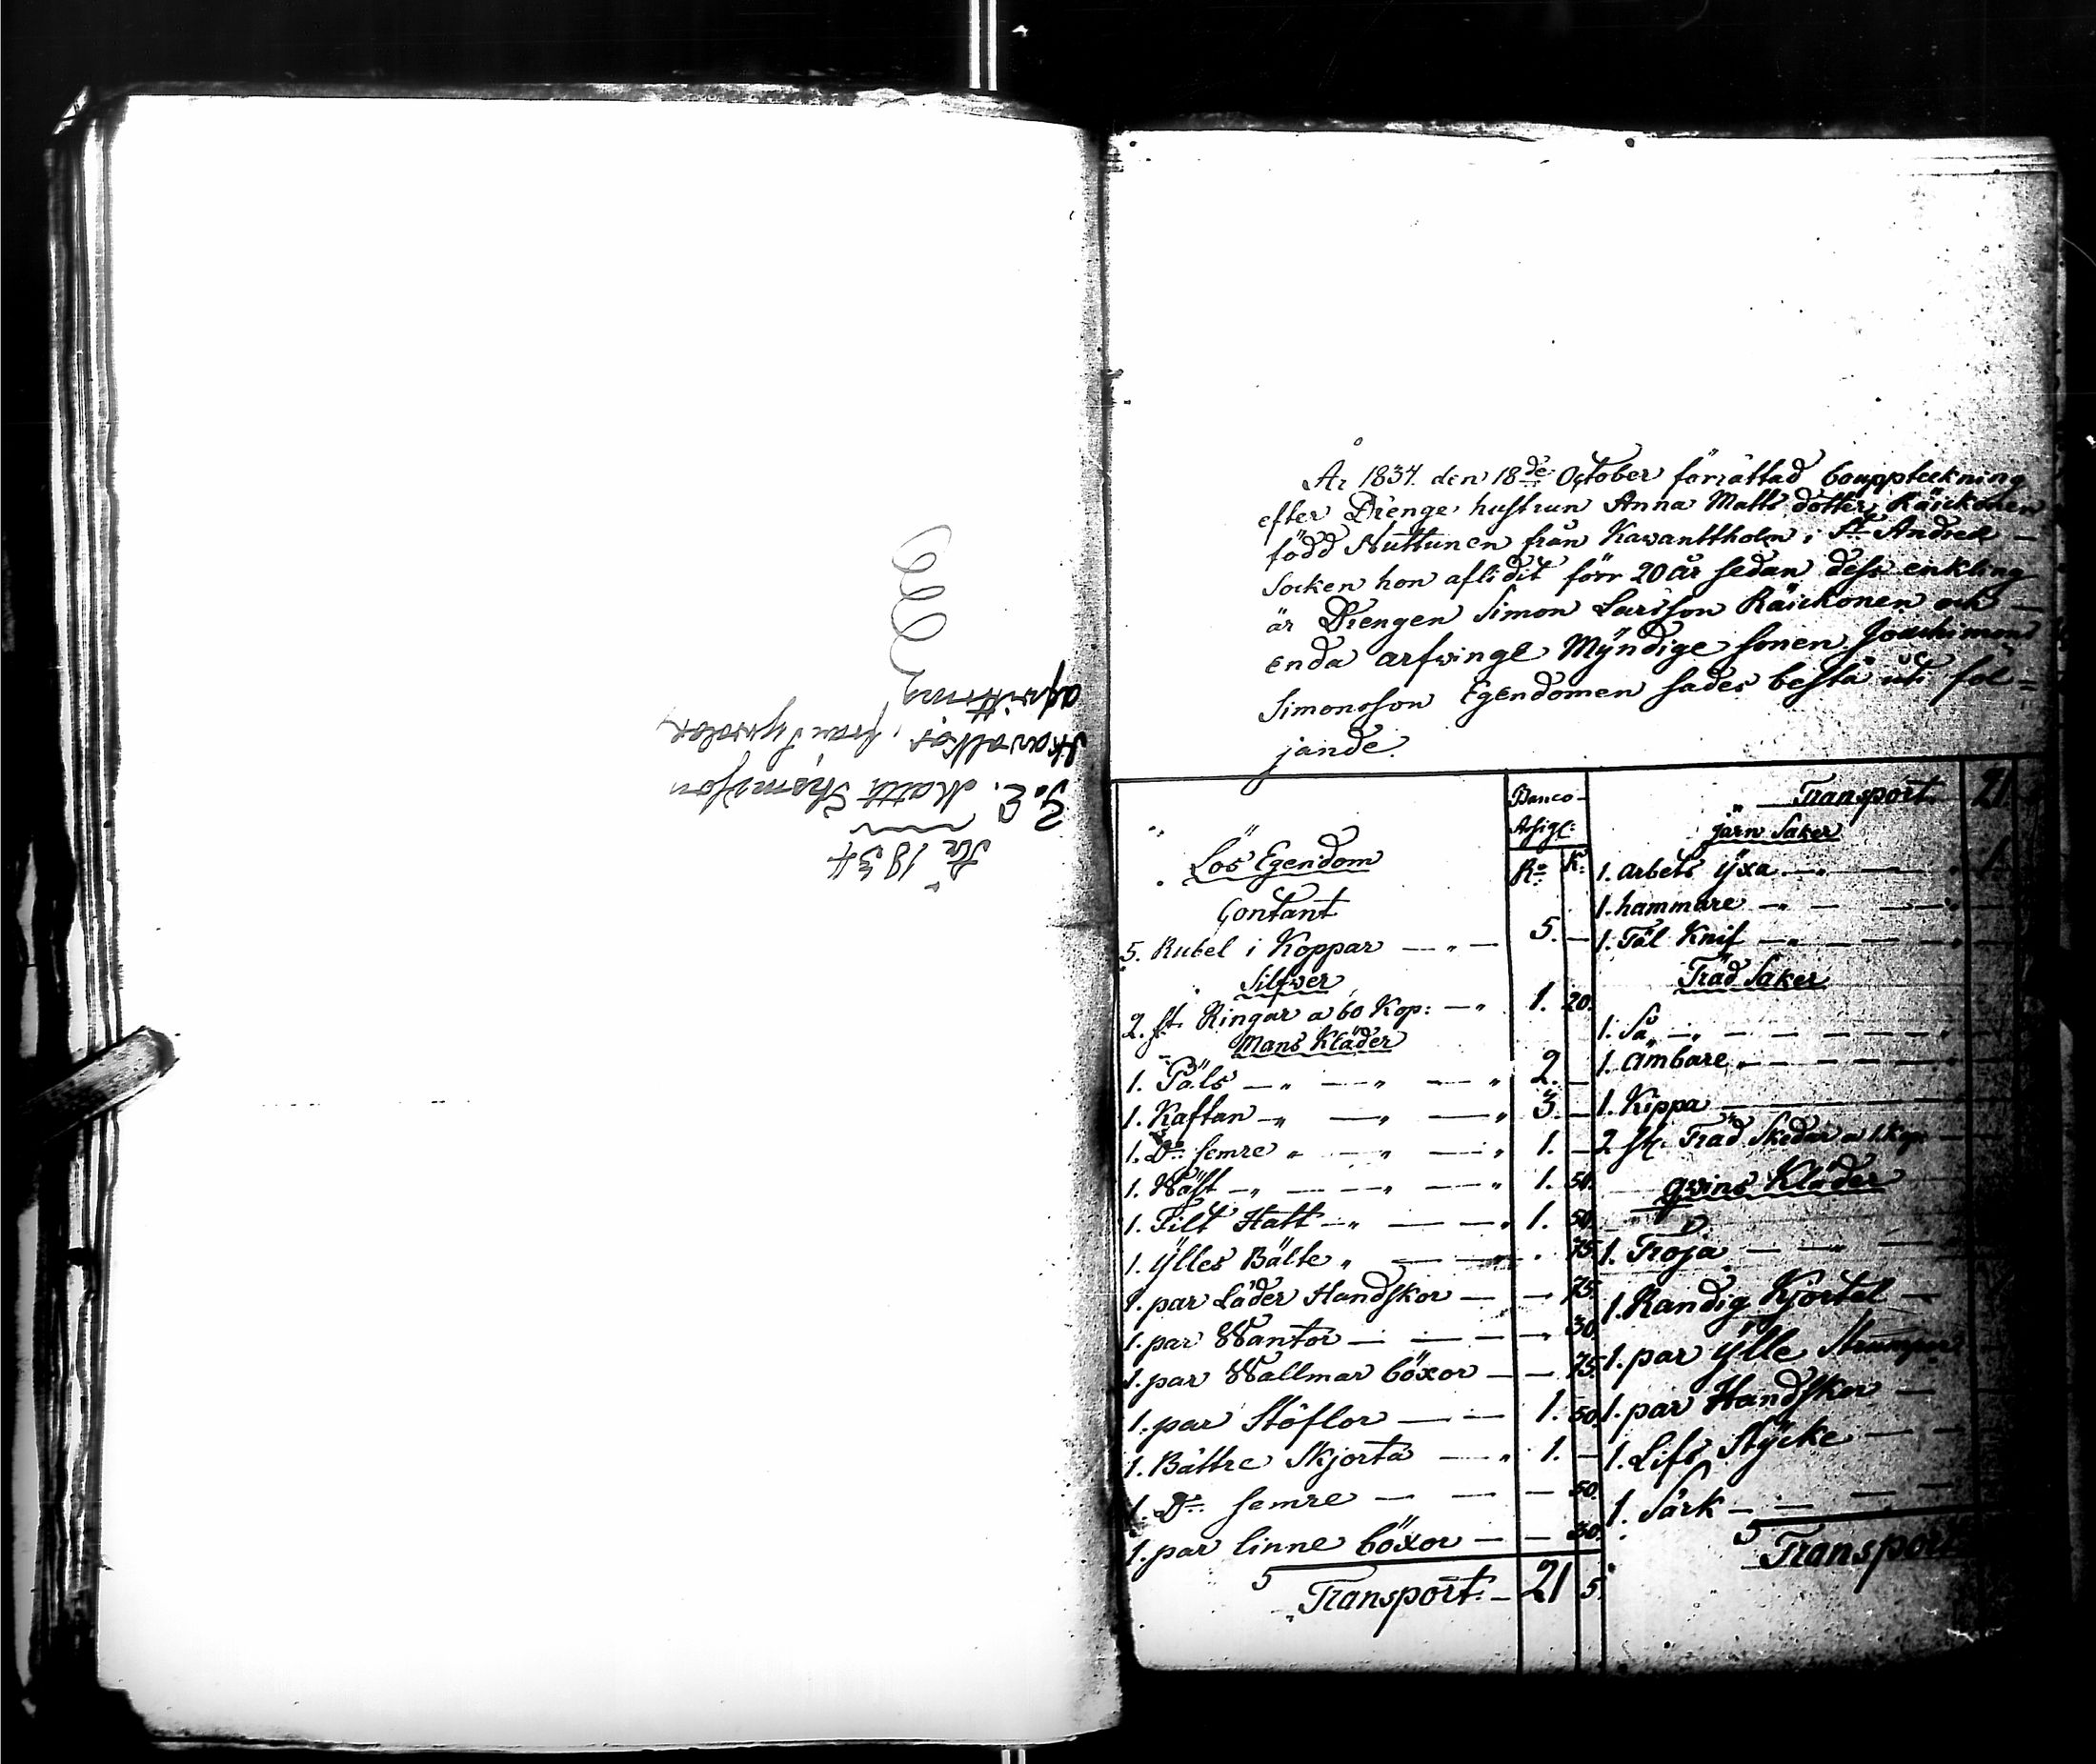 År 1834
Matts Thomasson
från
År 1834. den 18de October förrättad bouppteckning
efter Drenge hustrun Anna Matts dotter Räickönen
född Nuttunen från Kawanttholm i St Andreæ
Socken hon aflidit förr 20 år sedan dess enkling
är Drengen Simon Larsson Räickönen och
enda arfwinge Myndige sonen Joachim
Simonsson Egendomen sades bestå uti föl=
jande.
Banco
Assig:
Lös Egendom Ro: K:
Contant
5. Rubel i Koppar 5. —
Silfwer
2. st. Ringar a 60 Kop: 1. 20.
Mans Kläder
1. Päls 2. —
1. Kaftan 3. —
1. Do semre 1. —
1. Wäst 1. 50.
1. Filt Hatt 1. 50.
1. Ylles Bälte 75.
1. par Läder Handskor 75.
1. par Wantor 30.
1. par Wallmar böxor 75.
1. par Stöflor 1. 50.
1. Bättre Skjorta 1. —
1. Do semre 50.
1. par linne böxor 30.
Transport. 21 5.
Transport. 21.
Järn Saker
1. arbets yxa 1.
1. hammare
1. Täl Knif
Träd Saker
1. Så
1. Ämbare
1. Kippa
2 st. Träd Skedar a 1 kop
qwins Kläder
1. Tröja
1. Randig Kjortel
1. par ylle Strumpor
1. par Handskor
1. Lifs Stycke
1. Särk
Transport